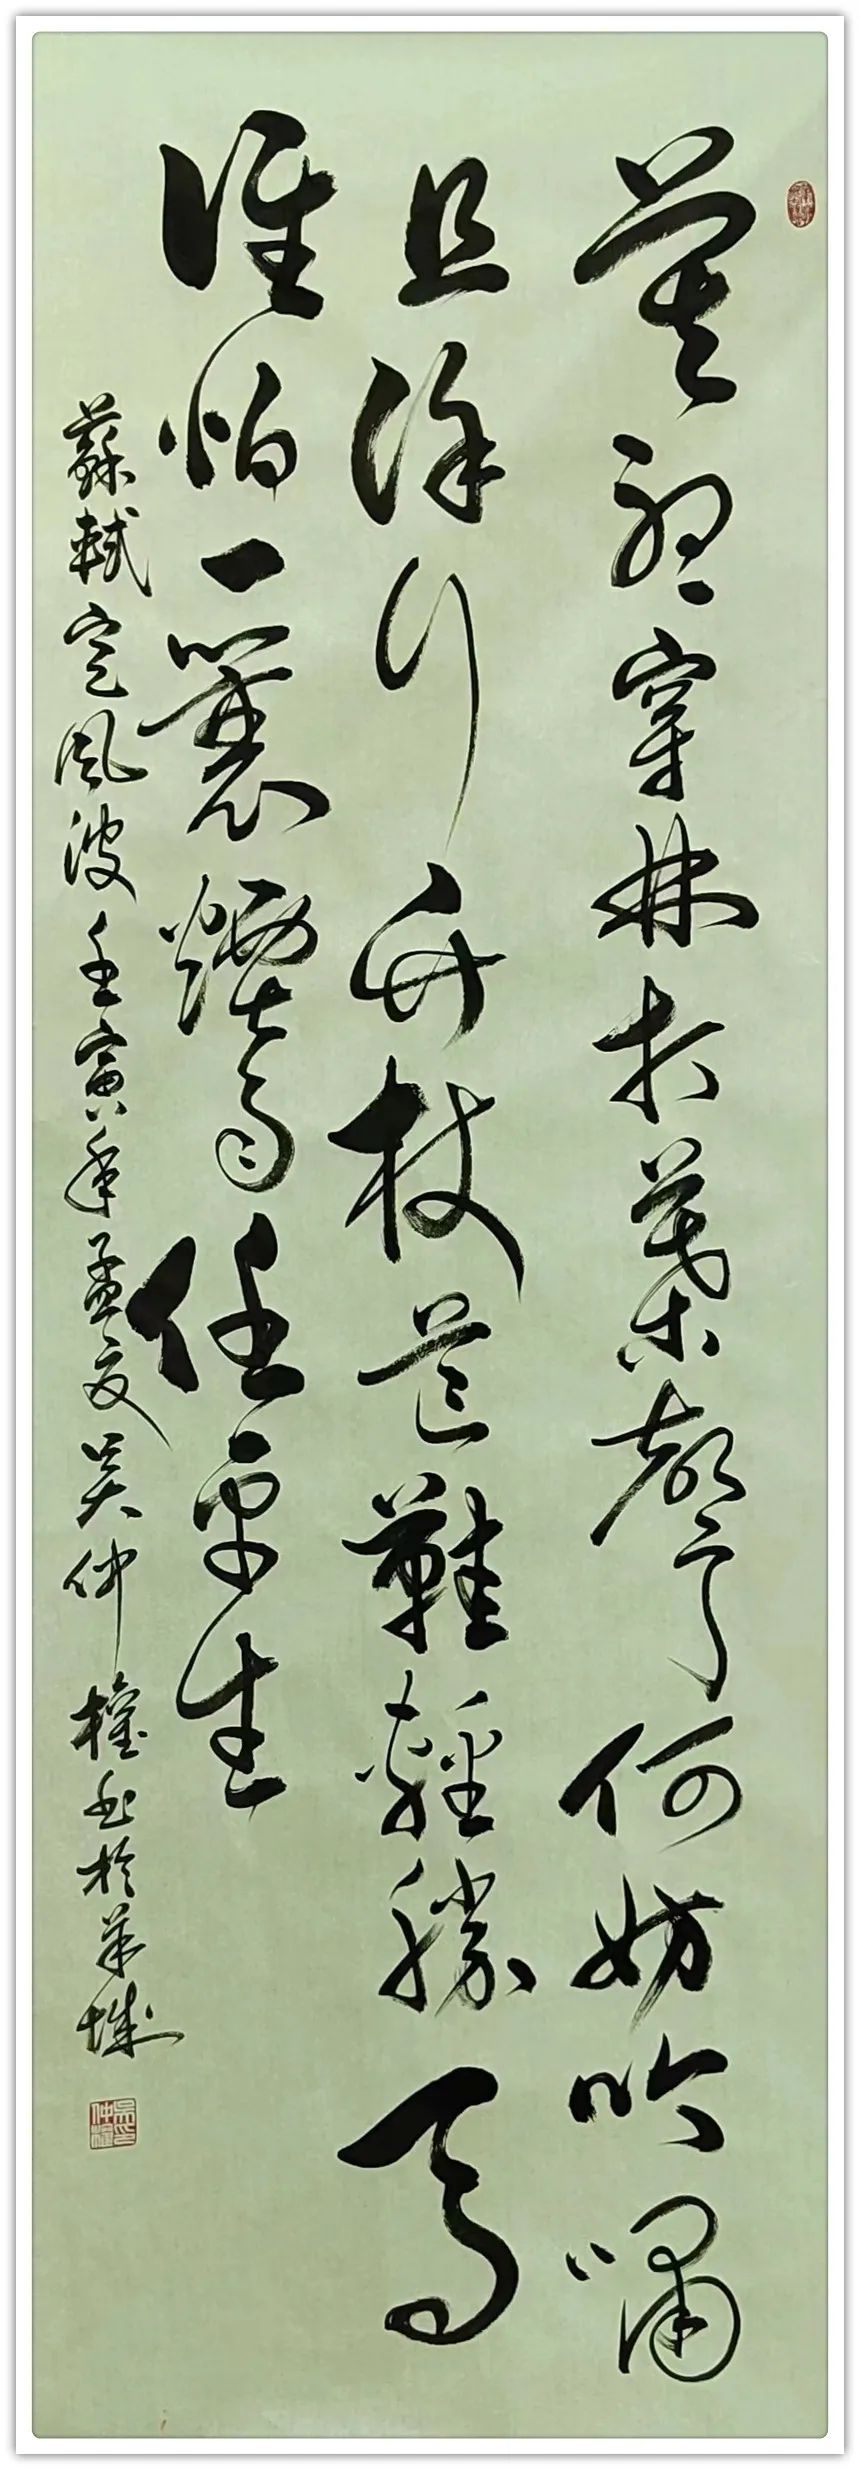 莫聽穿林打葉聲何妨吟嘯
且徐行竹杖芒鞋輕勝馬
誰怕一蓑煙雨任平生
蘇軾定風波壬寅年孟夏吳仲權書於羊城
吳印仲權